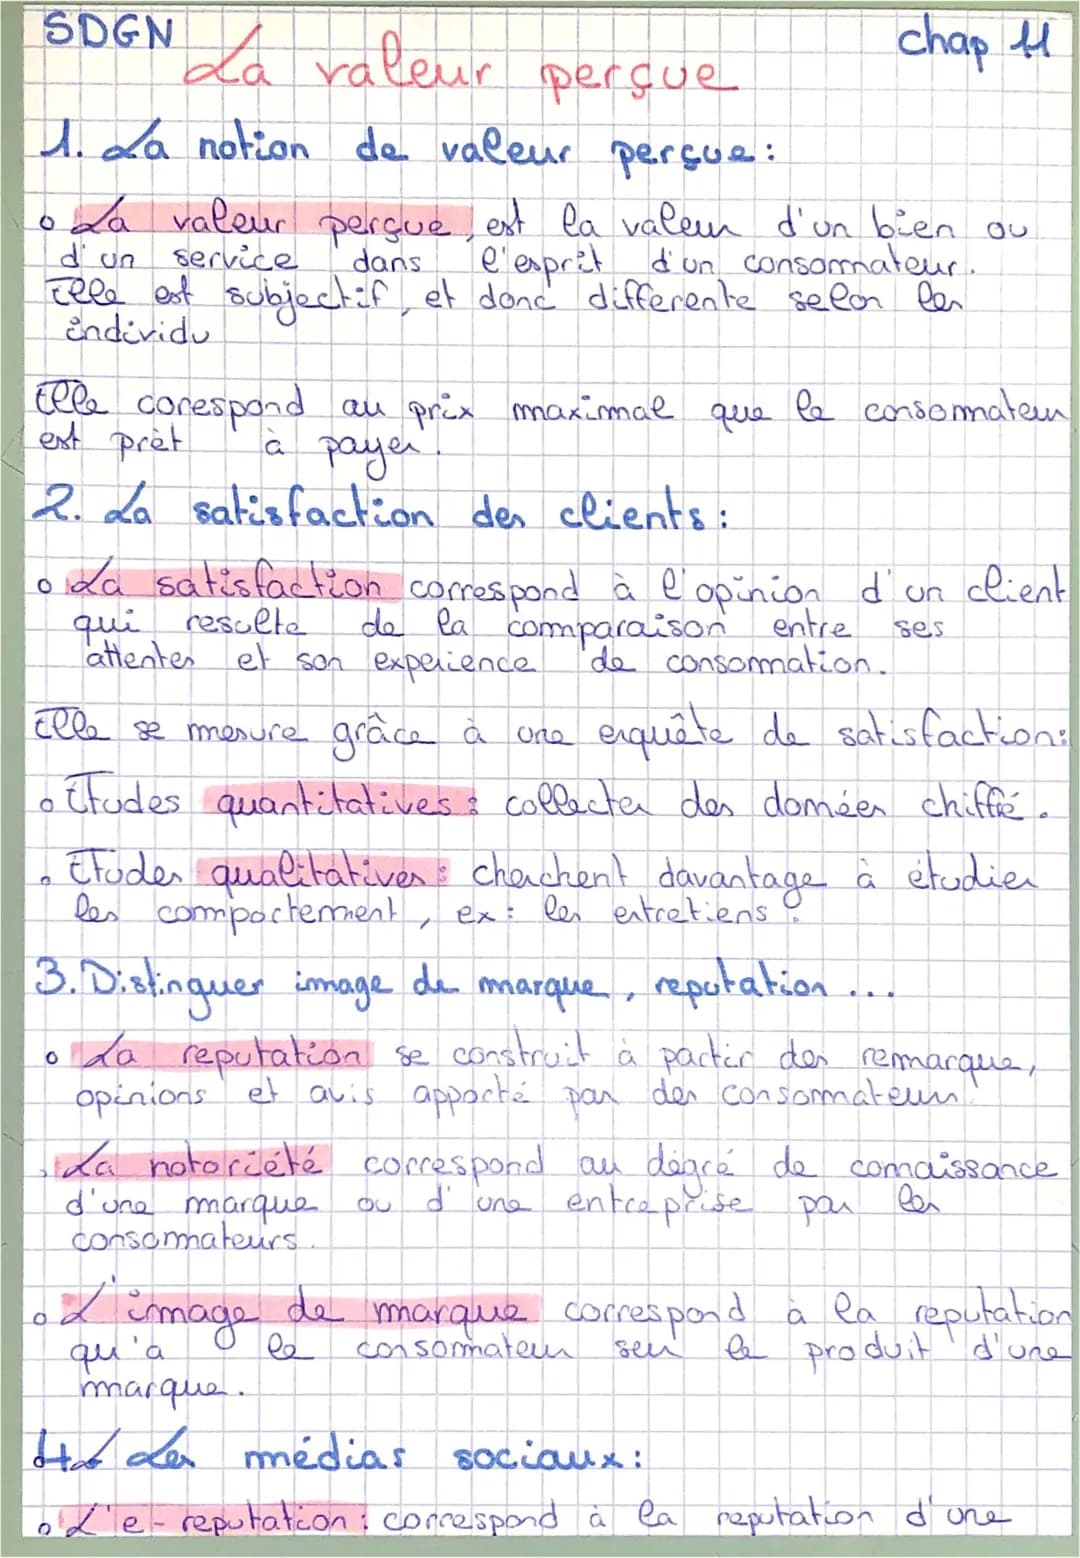 SDGN
chap 11
La valeur perçue
1. La notion de valeur perçue :
La valeur perçue, est la valeur d'un bien ou
d'un service dans l'esprit d'un consommateur.
Elle est subjectif, et donc differente selon les
individu
Elle corespond au prix maximal que le consommateur
est prèt à payer.
2. La satisfaction des clients :
La satisfaction correspond à l'opinion d'un client
qui resulte de la comparaison entre ses
attentes et son experience de consommation.
Elle se mesure grâce à une enquête de satisfaction :
Etudes quantitatives : collecter des données chiffré.
Etudes qualitatives : cherchent davantage à étudier
les comportement, ex : les entretiens.
3. Distinguer image de marque, reputation ...
La reputation se construit à partir des remarque,
opinions et avis apporté par des consommateurs.
La notoriété correspond au dégré de connaissance
d'une marque ou d'une entreprise par les
consommateurs.
L'image de marque correspond à la reputation
qu'a le consommateur seu le produit d'une
marque.
4. Les médias sociaux :
L'e-reputation : correspond à la reputation d'une